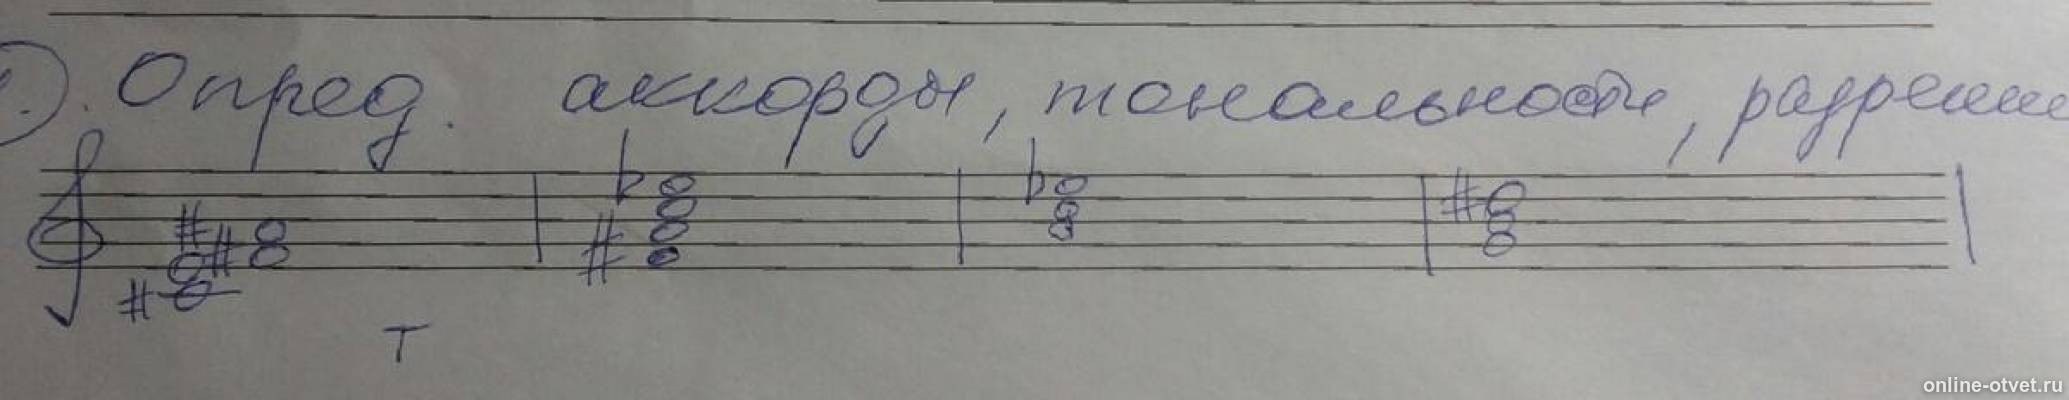 1). Опред. аккорды, тональности, разреши
Т
online-otvet.ru